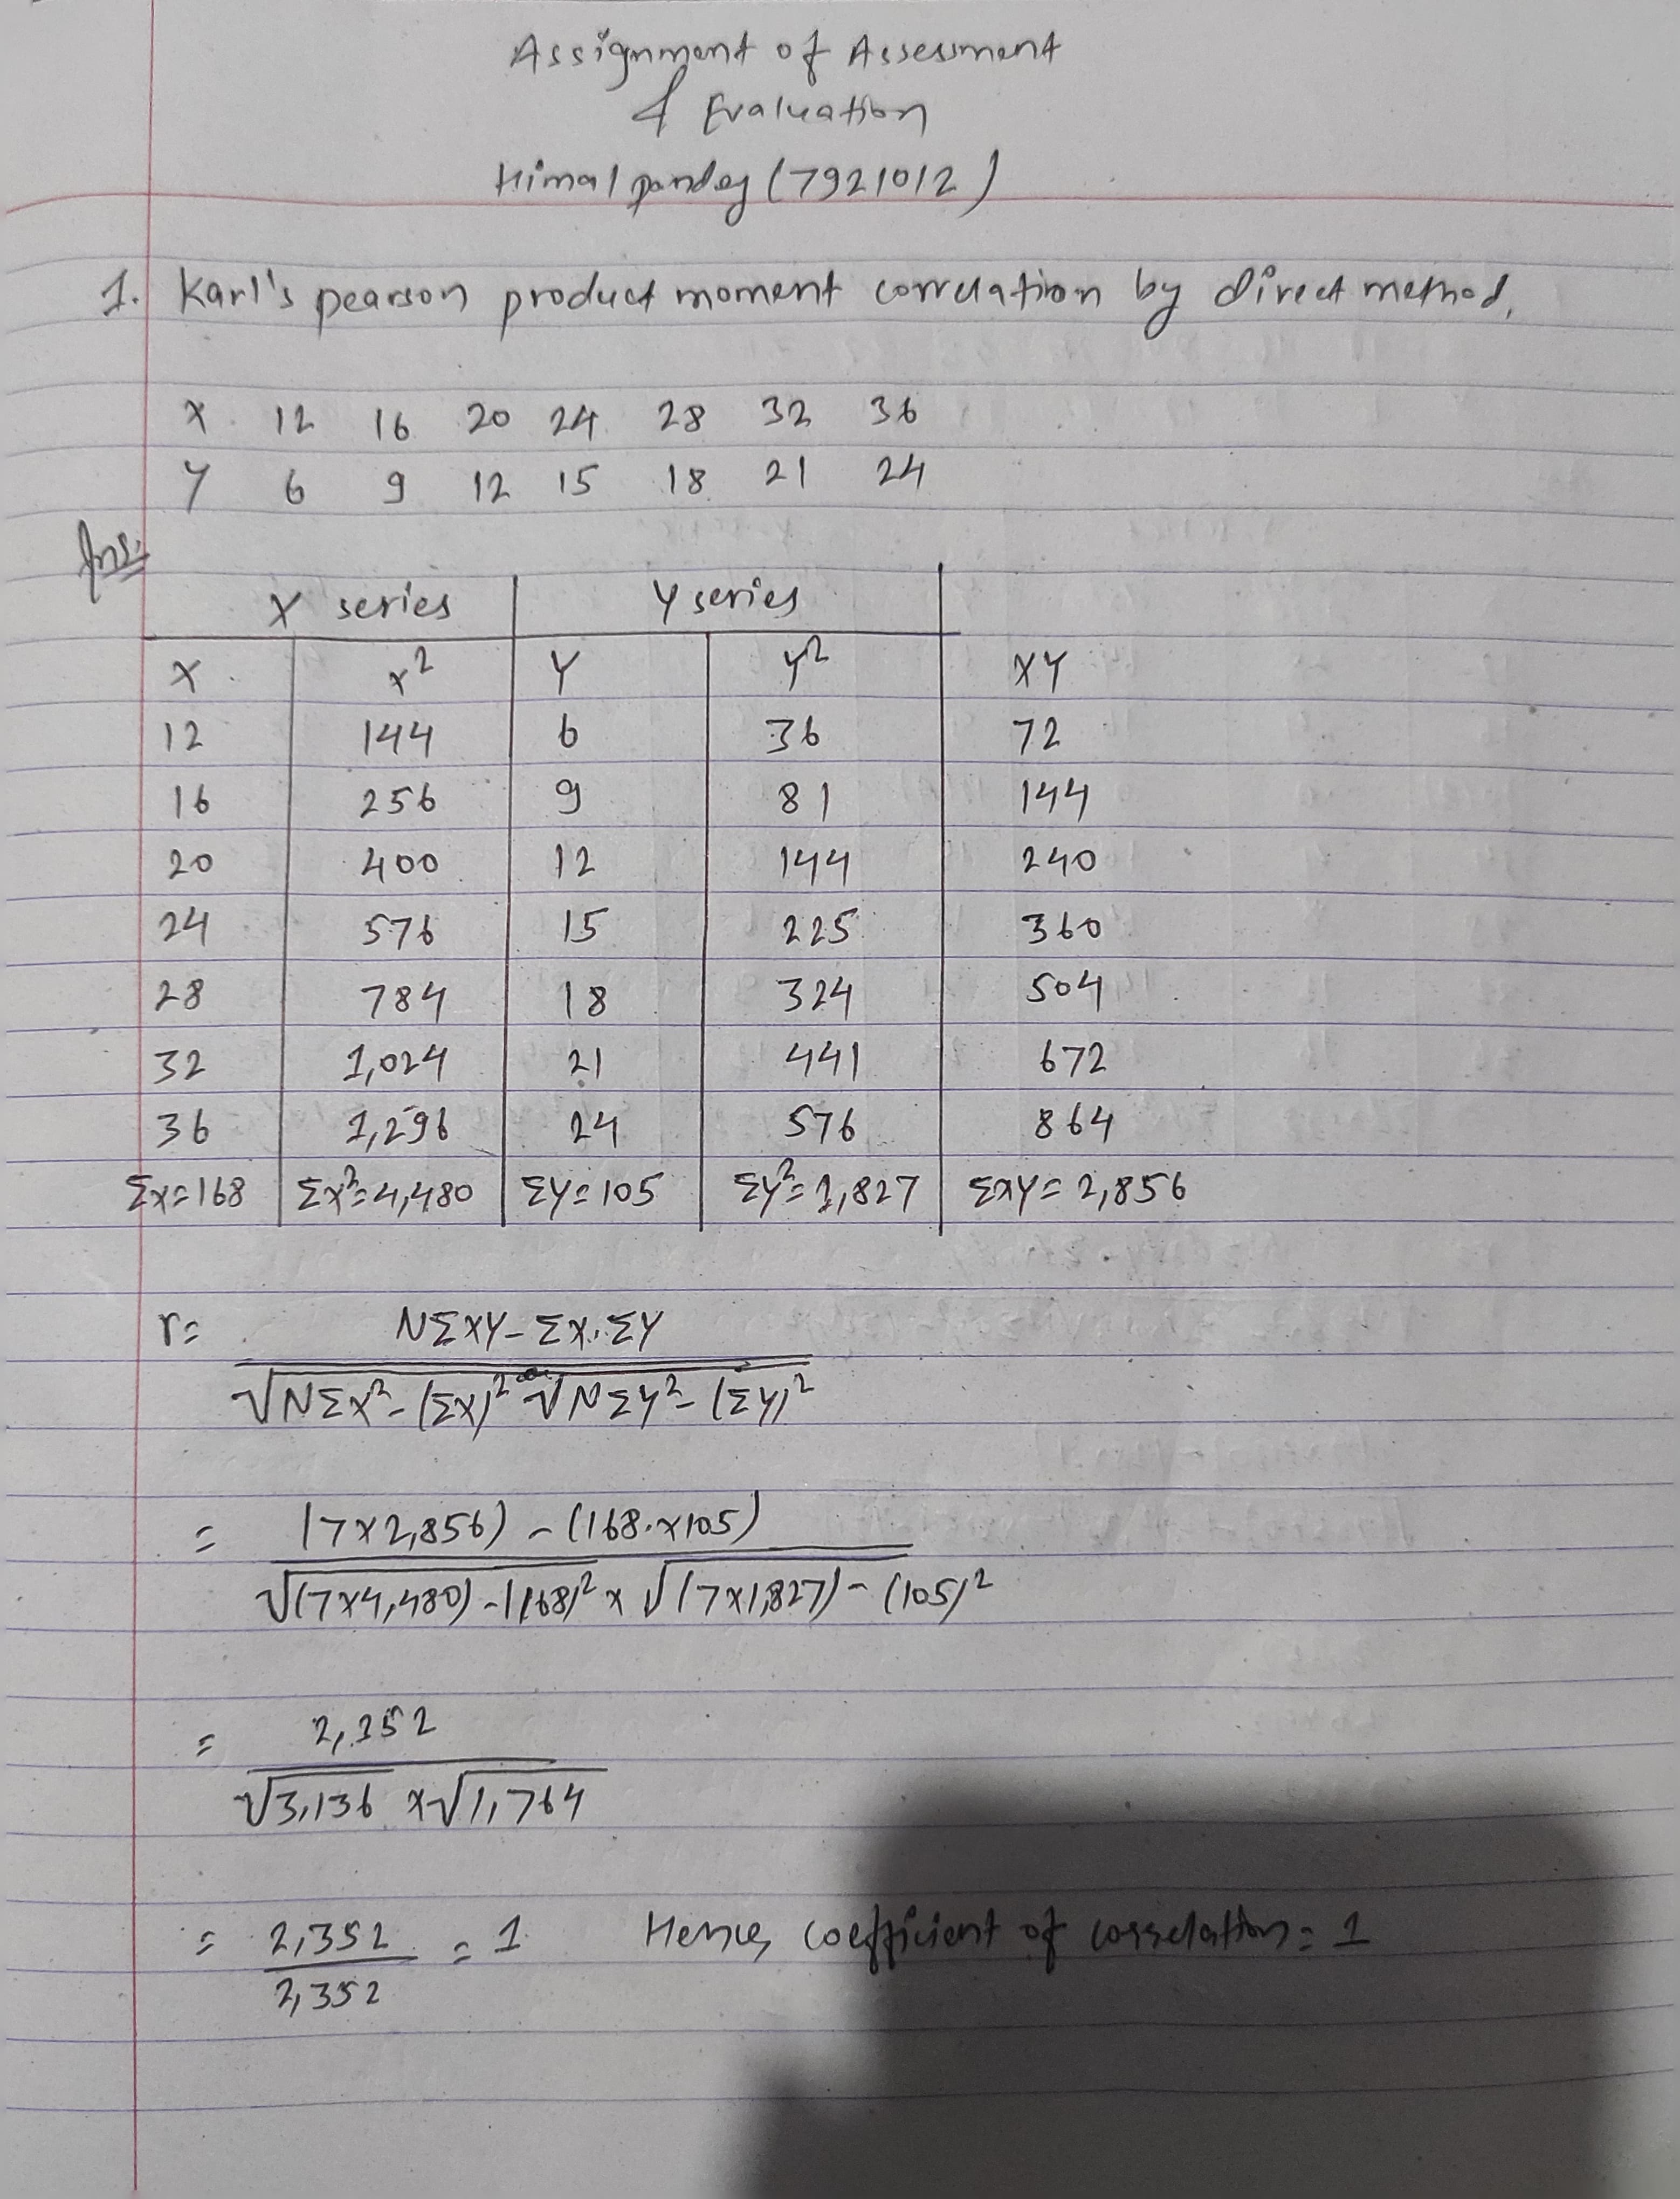 Assignment of Assessment
& Evaluation
Himal pandey (7921012)
1. Karl's pearson product moment correlation by direct method.
X 12 16 20 24 28 32 36
Y 6 9 12 15 18 21 24
Ans:
X series Y series
X x² Y Y² XY
12 144 6 36 72
16 256 9 81 144
20 400 12 144 240
24 576 15 225 360
28 784 18 324 504
32 1,024 21 441 672
36 1,296 24 576 864
Σx=168 Σx²=4,480 ΣY=105 ΣY²=1,827 ΣXY=2,856
r= NΣXY-ΣX.ΣY
√NΣX²-(ΣX)² √NΣY²-(ΣY)²
= (7×2,856) - (168.×105)
√(7×4,480)-(168)² × √(7×1,827)-(105)²
= 2,352
√3,136 × √1,764
= 2,352 = 1 Hence, coefficient of correlation = 1
2,352